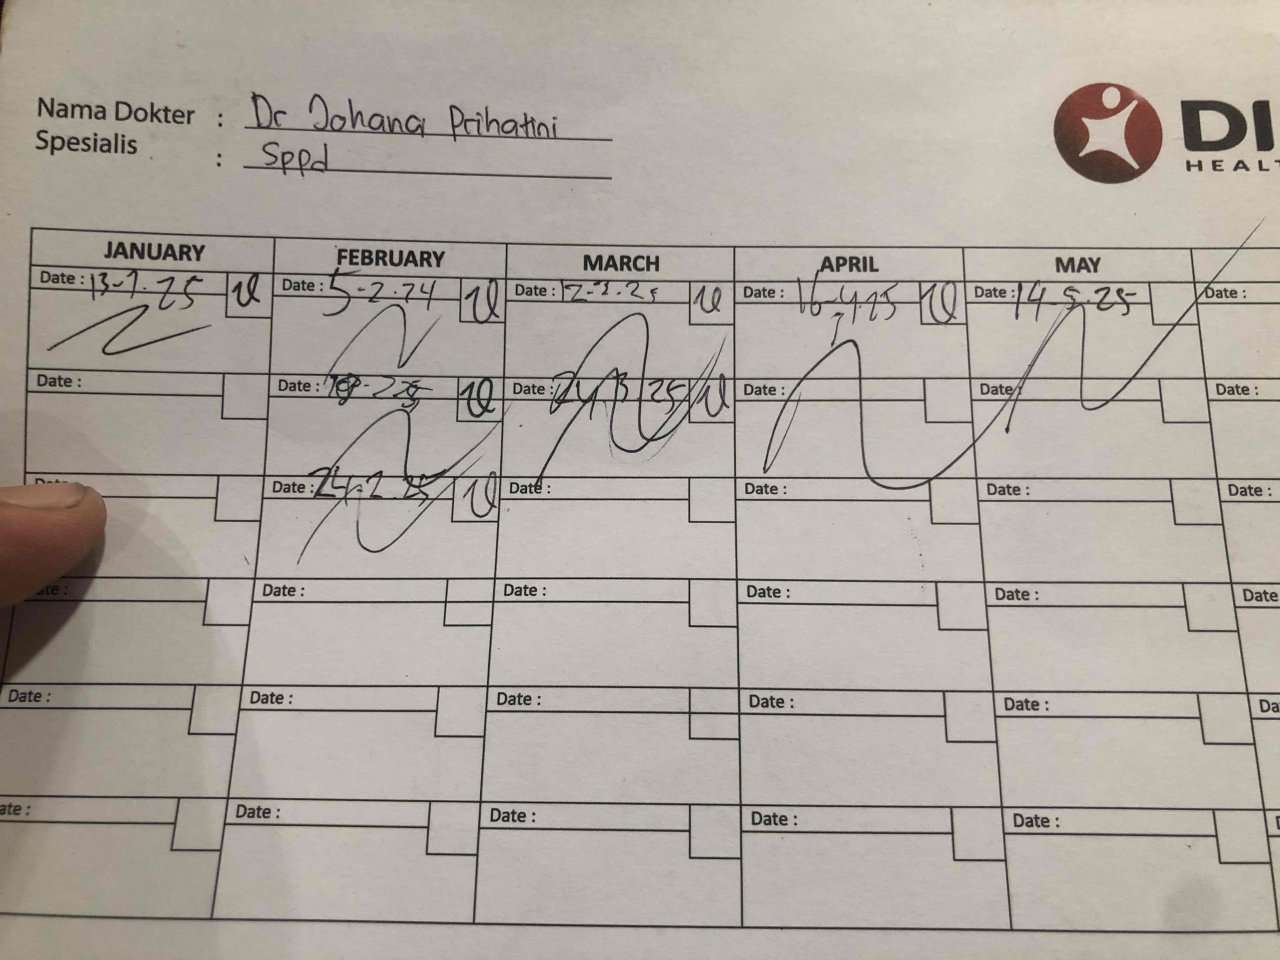 Nama Dokter : Dr Johana Prihatini
Spesialis : Sppd
DI
HEALT
JANUARY FEBRUARY MARCH APRIL MAY
Date : 13-1-25 Date : 5-2-24 Date : Date : 16-4-25 Date : 14-5-25 Date :
Date : Date : Date : 24-3-25 Date : Date : Date :
Date : Date : 24-2-25 Date : Date : Date : Date :
ate : Date : Date : Date : Date : Date
Date : Date : Date : Date : Date : Da
ate : Date : Date : Date : Date : D